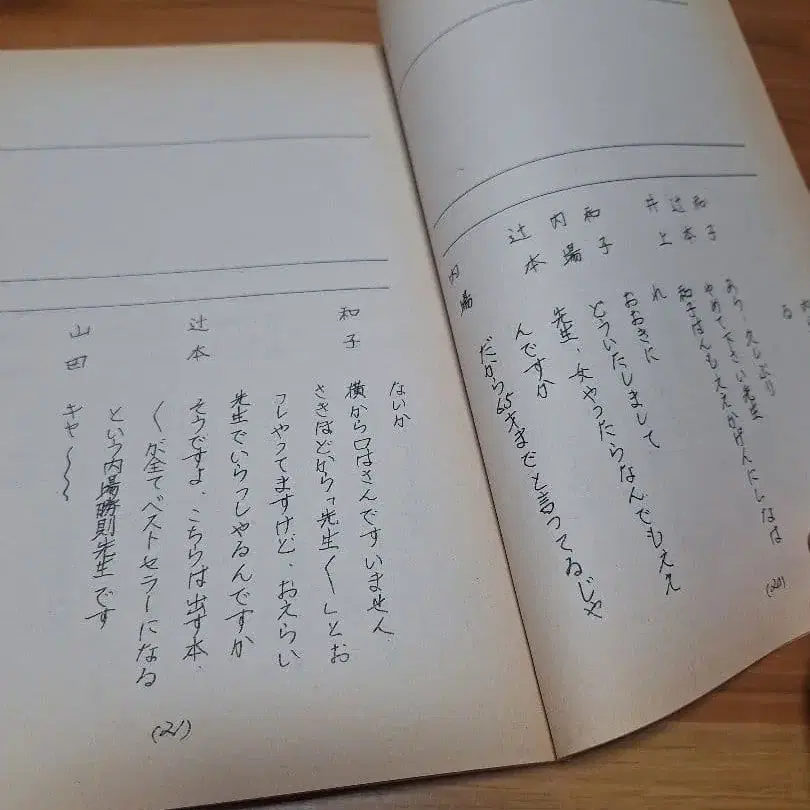 る
和子 あら、久しぶり
辻本 やめて下さい先生
井上 和子はんもええかげんにしなは
れ
和子 おおきに
内場 どういたしまして
辻本 先生、女やったらなんでもええ
んですか
内場 だから65才までと言ってるじゃ
(20)
ないか
和子 横から口はさんですいません、
さきほどから「先生〱」とお
っしゃってますけど、おえらい
先生でいらっしゃるんですか
辻本 そうですよ、こちらは出す本、
〱が全てベストセラーになる
という内場勝則先生です
山田 キャ〜〜〜
(21)